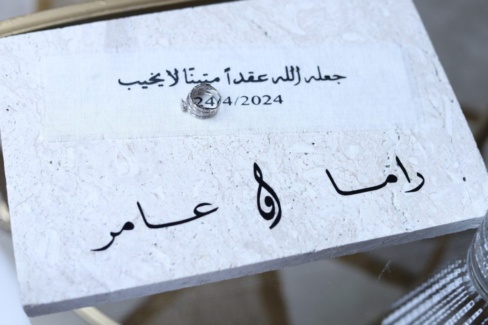 جعله الله عقداً متينًا لا يخيب
24/4/2024
راما و عامر